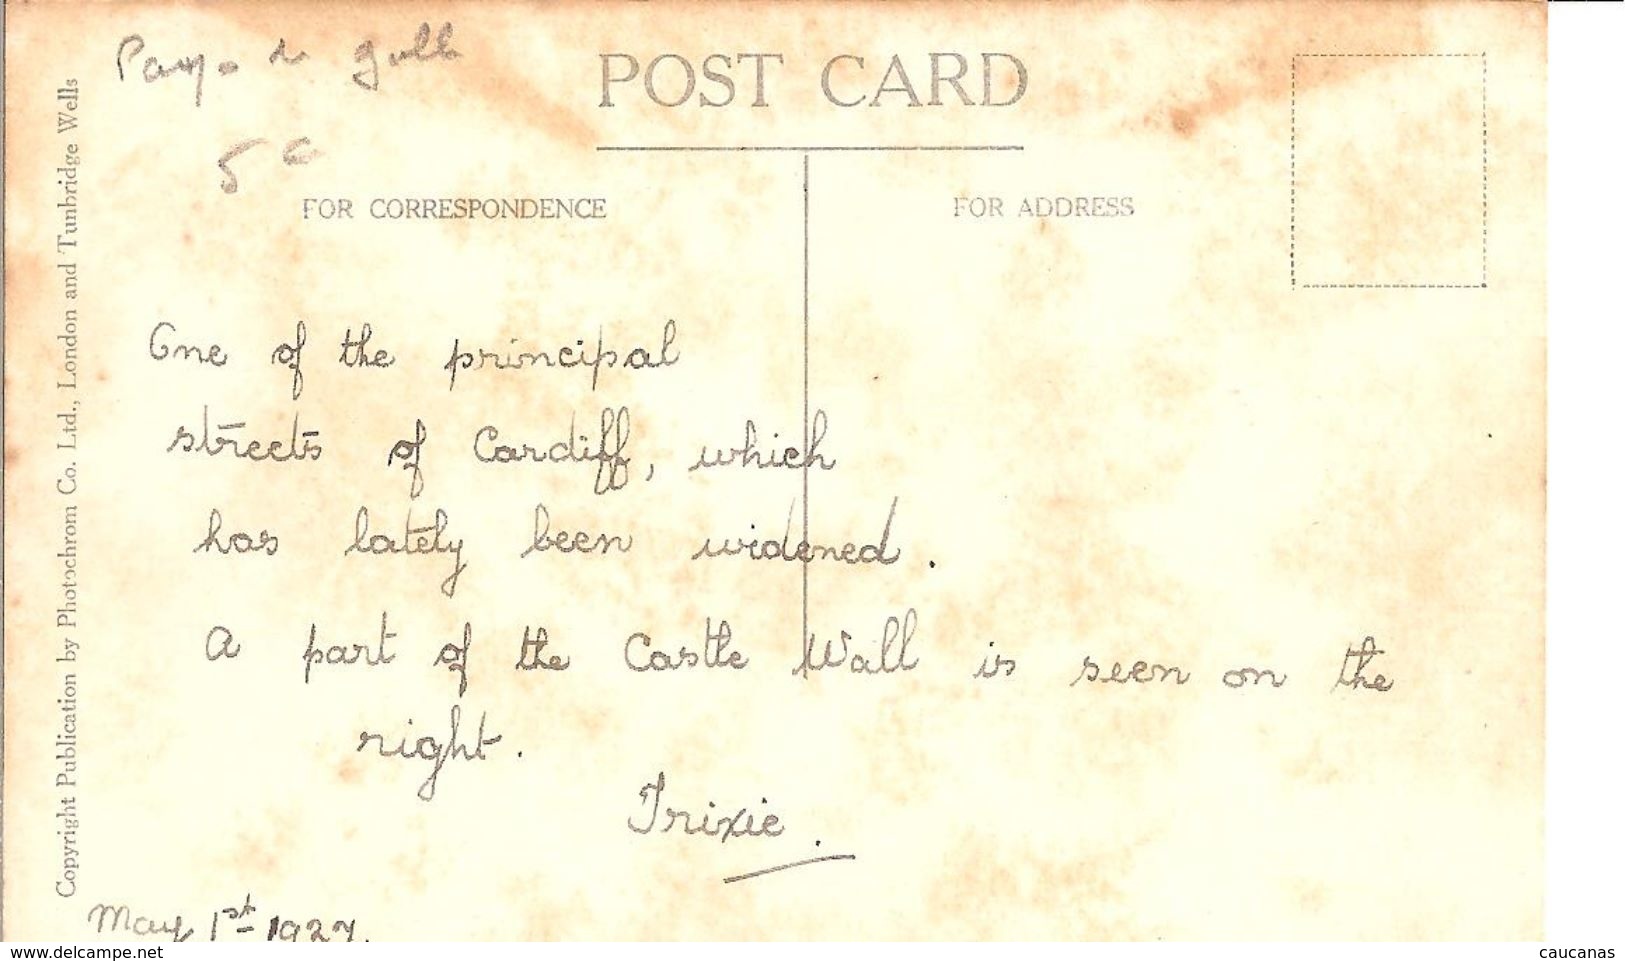 5c
POST CARD
FOR CORRESPONDENCE
FOR ADDRESS
Copyright Publication by Photochrom Co. Ltd., London and Tunbridge Wells
One of the principal
streets of Cardiff, which
has lately been widened.
A part of the Castle Wall is seen on the
right.
Trixie.
May 1st 1927.
www.delcampe.net
caucanas